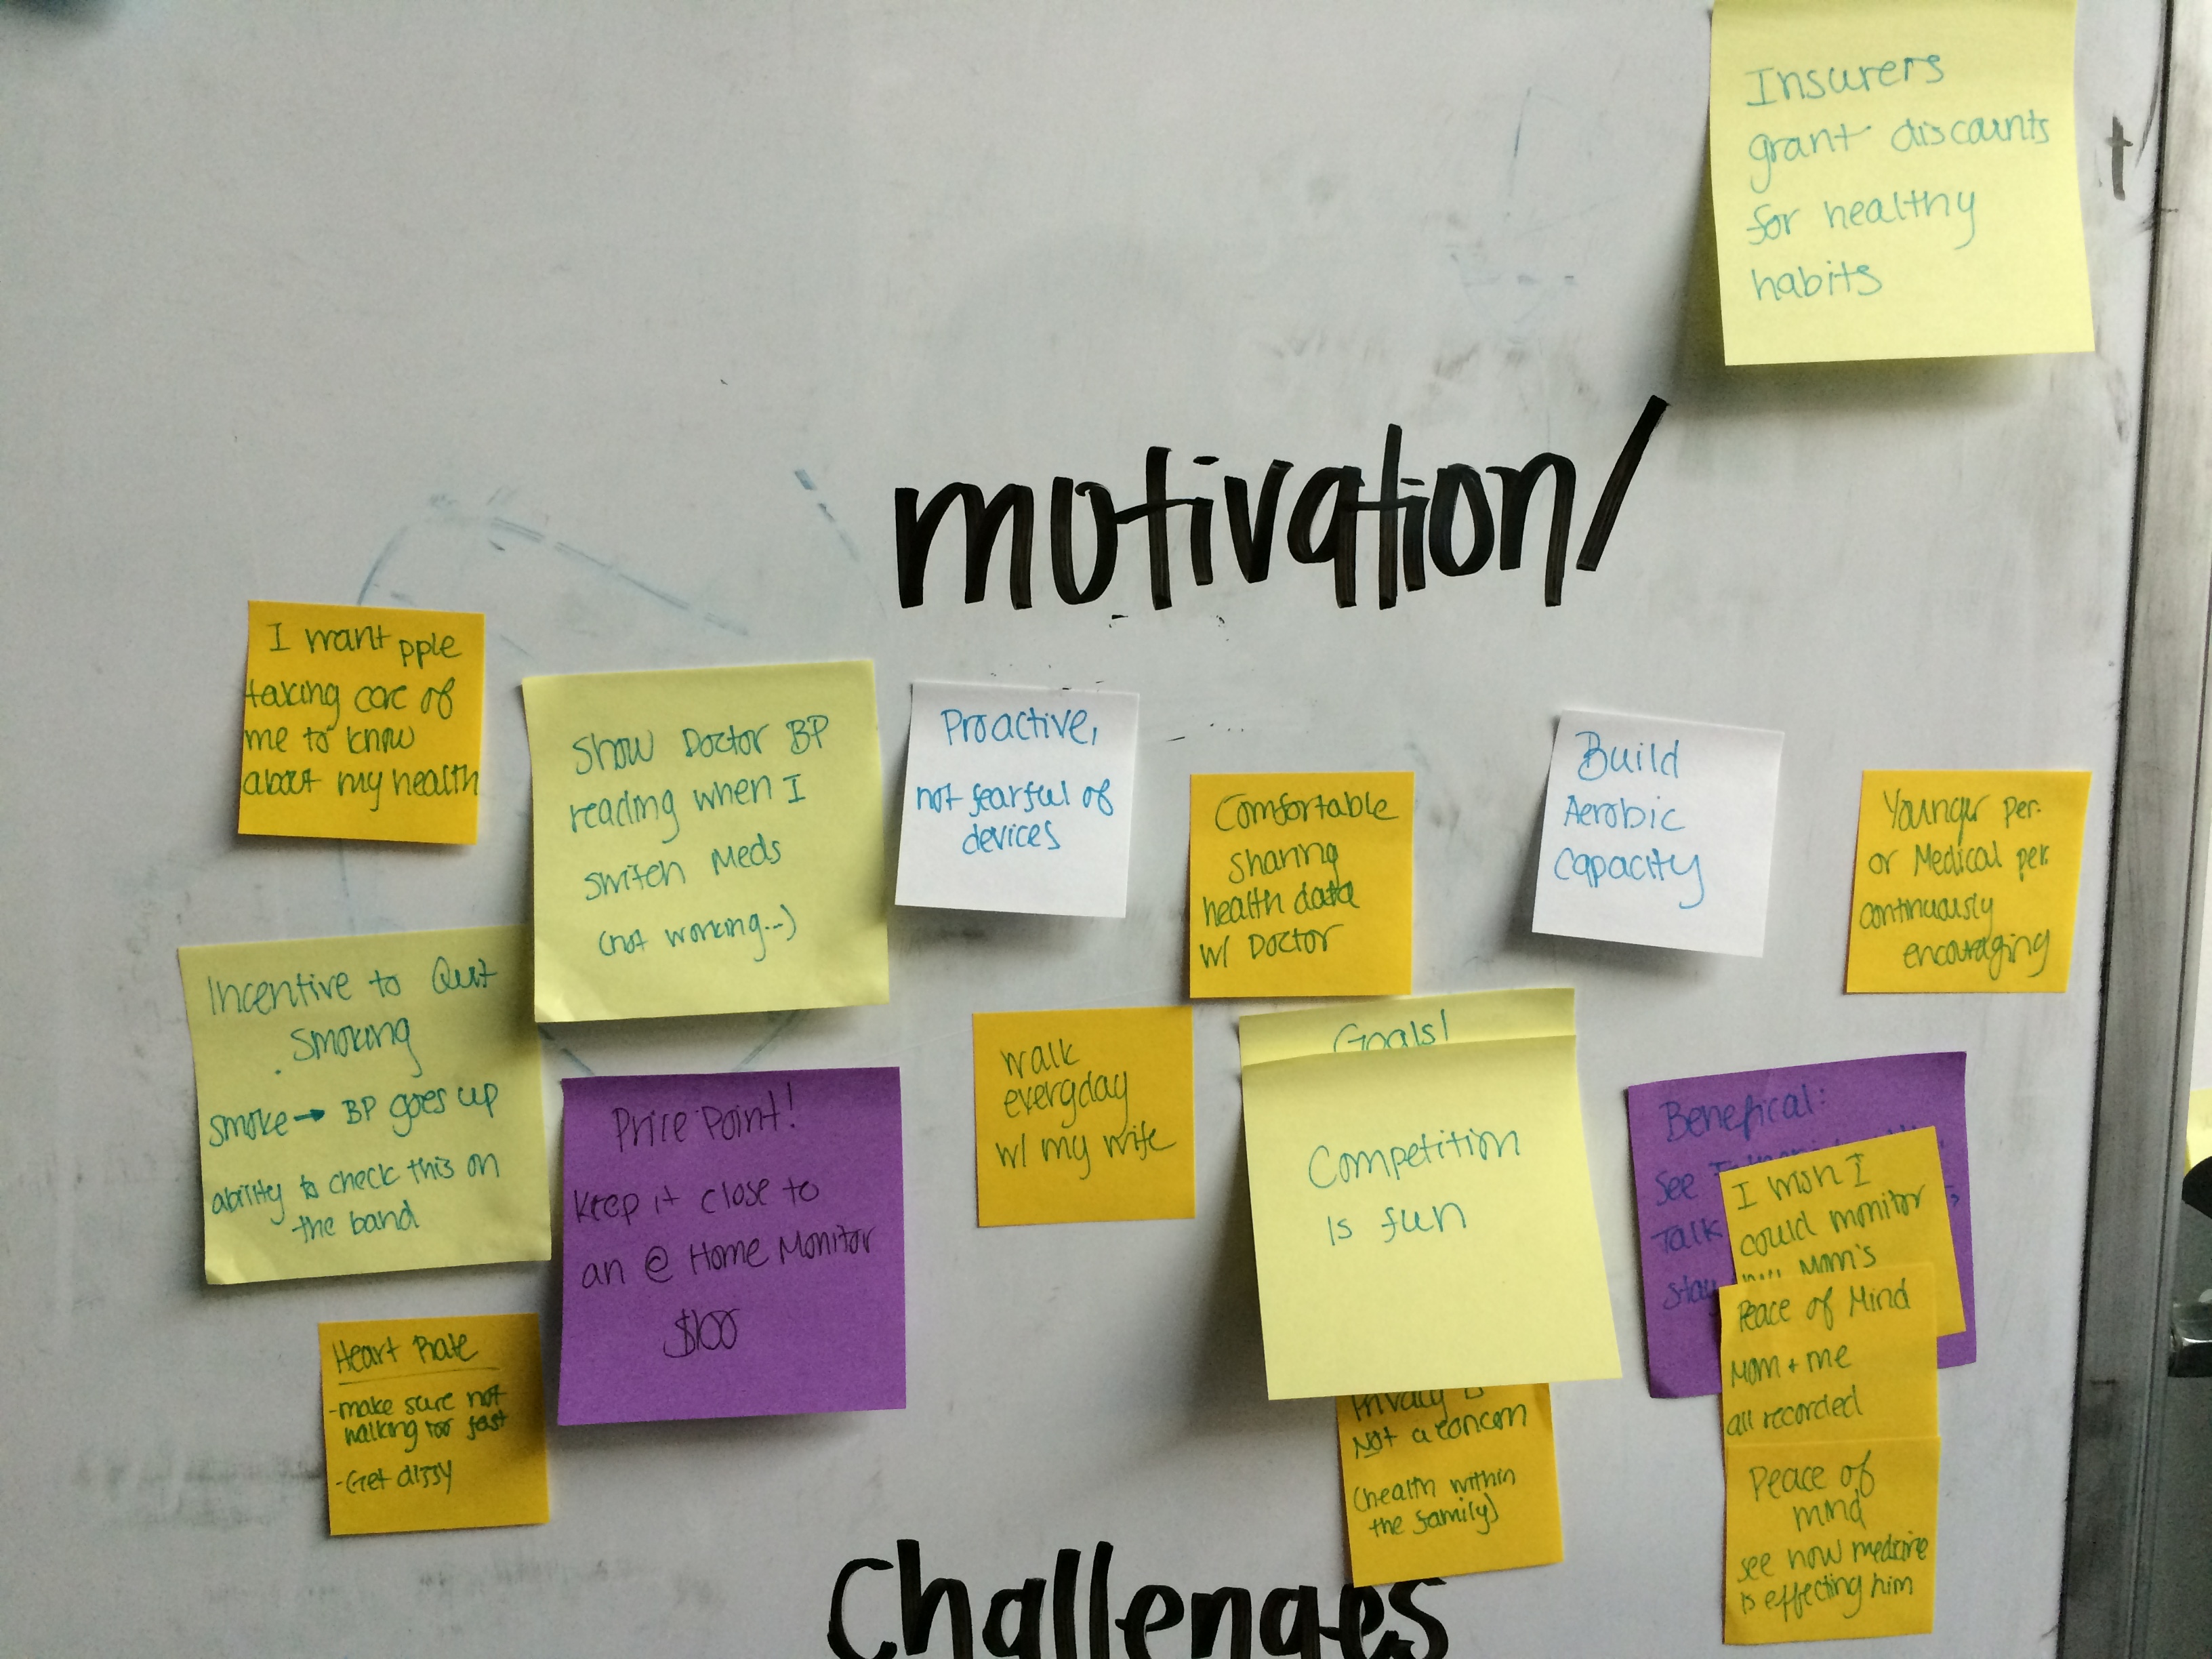 Insurers
grant discounts
for healthy
habits
t
motivation/
I want pple
taking care of
me to know
about my health
Show Doctor BP
reading when I
switch Meds
(not working...)
Proactive,
not fearful of
devices
Comfortable
sharing
health data
w/ Doctor
Build
Aerobic
Capacity
Younger per.
or Medical per.
continuously
encouraging
Incentive to Quit
Smoking
smoke → BP goes up
ability to check this on
the band
Price Point!
keep it close to
an @ Home Monitor
$100
walk
everyday
w/ my wife
Goals!
Competition
is fun
Benefical:
See
Talk
stay
I wish I
could monitor
my Mom's
Peace of Mind
Mom + me
all recorded
Peace of
mind
see how medicine
is effecting him
Heart Rate
-make sure not
walking too fast
-Get dizzy
Privacy is
Not a concern
(health within
the family)
Challenges